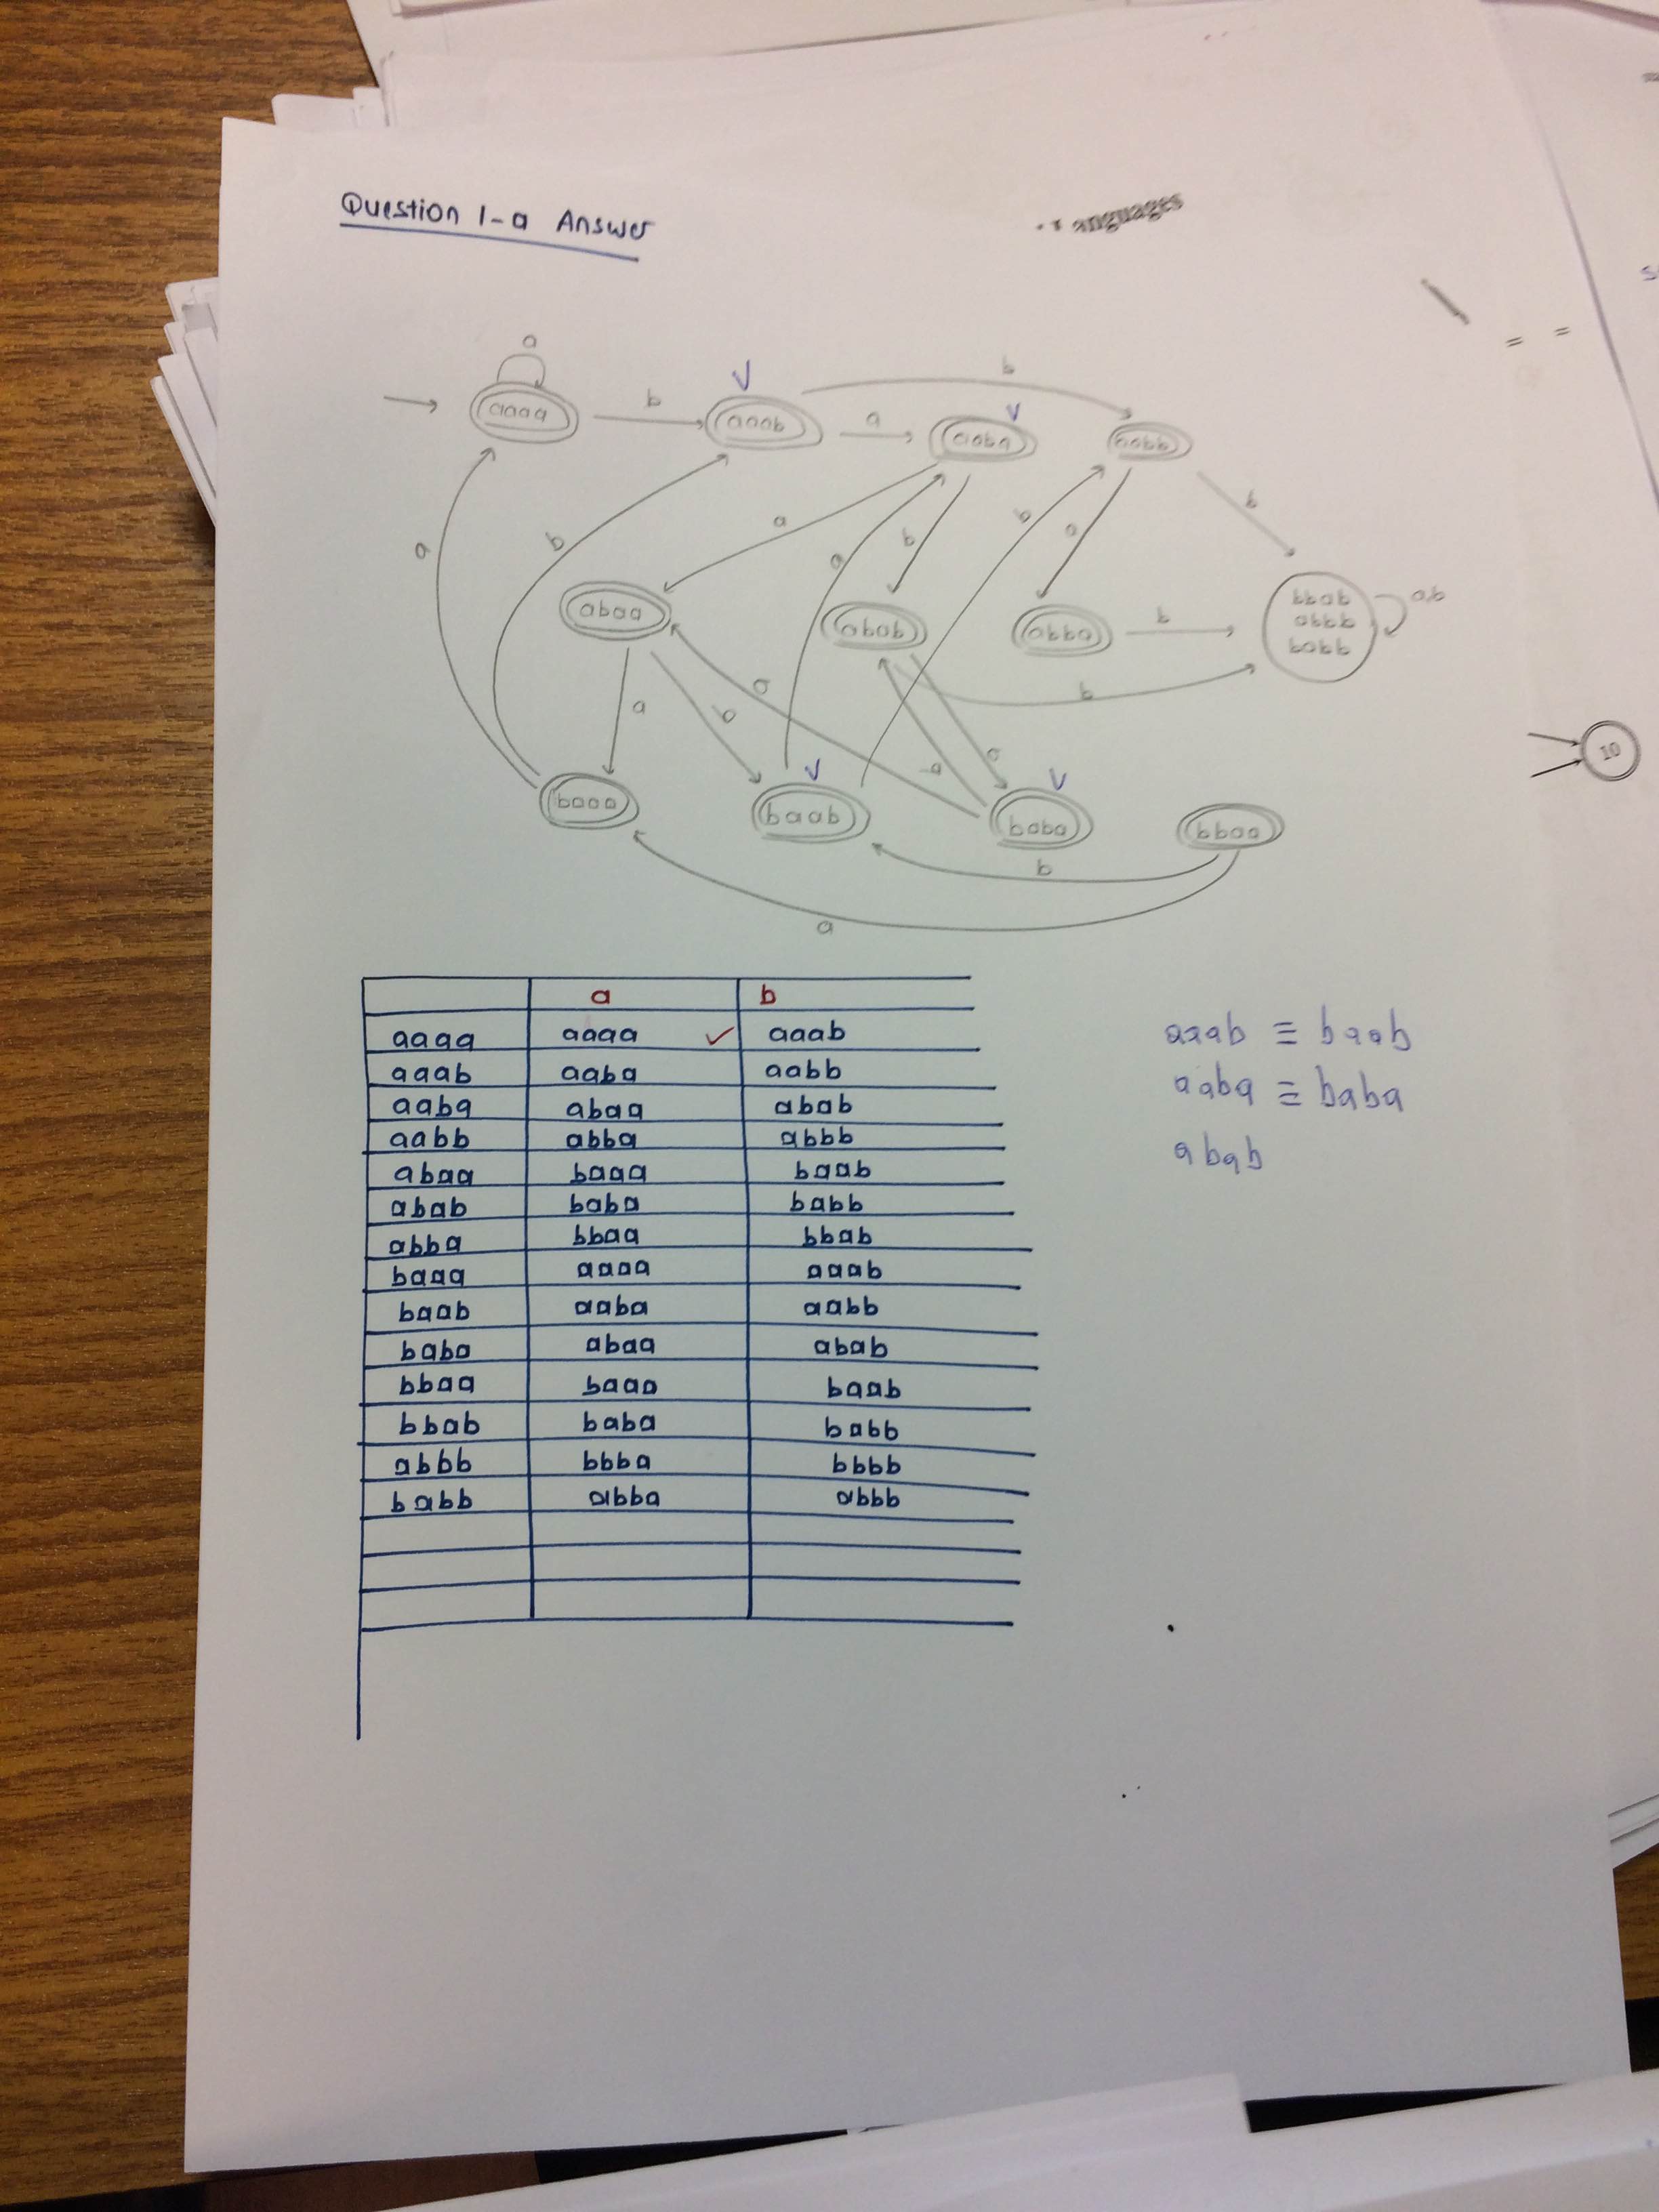 Question 1-a Answer
anguages
= =
a
aaaa b aaab a aaba b aabb
b
a b a b a b a
abaa abab abba b bbab abbb babb a,b
b
a b a b a
baaa baab baba bbaa
b
a
10
a b
aaaa aaaa ✓ aaab
aaab aaba aabb
aaba abaa abab
aabb abba abbb
abaa baaa baab
abab baba babb
abba bbaa bbab
baaa aaaa aaab
baab aaba aabb
baba abaa abab
bbaa baaa baab
bbab baba babb
abbb bbba bbbb
babb abba abbb
aaab ≡ baab
aaba ≡ baba
abab